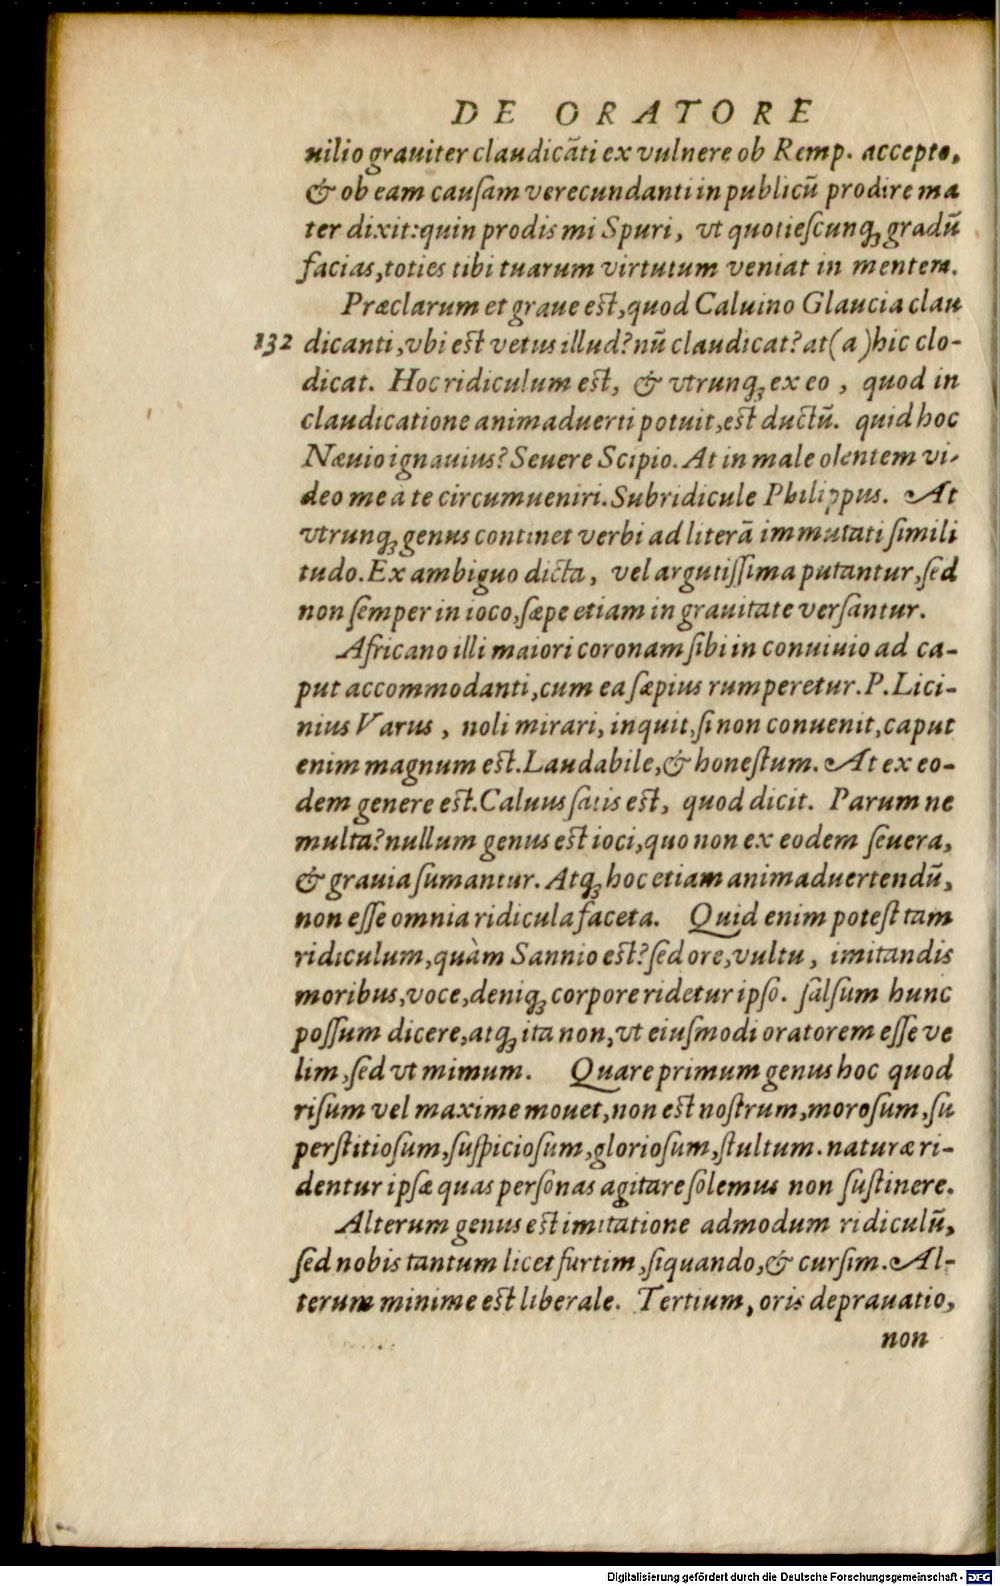 DE ORATORE
uilio grauiter claudicāti ex vulnere ob Remp. accepto,
& ob eam cauſam verecundanti in publicū prodire ma
ter dixit: quin prodis mi Spuri, vt quotieſcunq; gradū
facias, toties tibi tuarum virtutum veniat in mentem.
Præclarum et graue est, quod Caluino Glaucia clau
132 dicanti, vbi est vetus illud? nū claudicat? at (a) hic clo-
dicat. Hoc ridiculum est, & vtrunq; ex eo, quod in
claudicatione animaduerti potuit, est ductū. quid hoc
Næuio ignauius? Seuere Scipio. At in male olentem vi-
deo me a te circumueniri. Subridicule Philippus. At
vtrunq; genus continet verbi ad literā immutati ſimili
tudo. Ex ambiguo dicta, vel argutiſſima putantur, ſed
non ſemper in ioco, ſæpe etiam in grauitate verſantur.
Africano illi maiori coronam ſibi in conuiuio ad ca-
put accommodanti, cum ea ſæpius rumperetur. P. Lici-
nius Varus, noli mirari, inquit, ſi non conuenit, caput
enim magnum est. Laudabile, & honeſtum. At ex eo-
dem genere est. Caluus ſatis est, quod dicit. Parum ne
multa? nullum genus est ioci, quo non ex eodem ſeuera,
& grauia ſumantur. Atq; hoc etiam animaduertendū,
non eſſe omnia ridicula faceta. Quid enim poteſt tam
ridiculum, quàm Sannio est? ſed ore, vultu, imitandis
moribus, voce, deniq; corpore ridetur ipſo. ſalſum hunc
poſſum dicere, atq; ita non, vt eiuſmodi oratorem eſſe ve
lim, ſed vt mimum. Quare primum genus hoc quod
riſum vel maxime mouet, non est noſtrum, moroſum, ſu
perſtitioſum, ſuſpicioſum, glorioſum, ſtultum. naturæ ri-
dentur ipſæ quas perſonas agitare ſolemus non ſuſtinere.
Alterum genus est imitatione admodum ridiculū,
ſed nobis tantum licet furtim, ſiquando, & curſim. Al-
terum minime est liberale. Tertium, oris deprauatio,
non
Digitalisierung gefördert durch die Deutsche Forschungsgemeinschaft - DFG